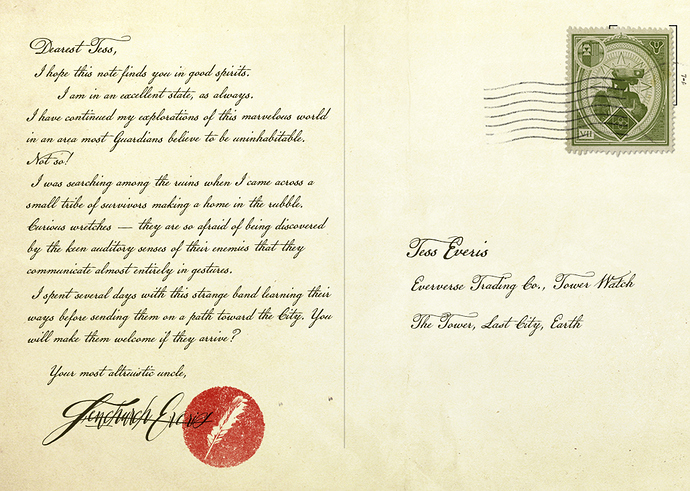 Dearest Tess,
I hope this note finds you in good spirits.
I am in an excellent state, as always.
I have continued my explorations of this marvelous world
in an area most Guardians believe to be uninhabitable.
Not so!
I was searching among the ruins when I came across a
small tribe of survivors making a home in the rubble.
Curious wretches — they are so afraid of being discovered
by the keen auditory senses of their enemies that they
communicate almost entirely in gestures.
I spent several days with this strange band learning their
ways before sending them on a path toward the City. You
will make them welcome if they arrive?
Your most altruistic uncle,
Fenchurch Everis
VII
Tess Everis
Eververse Trading Co., Tower Watch
The Tower, Last City, Earth